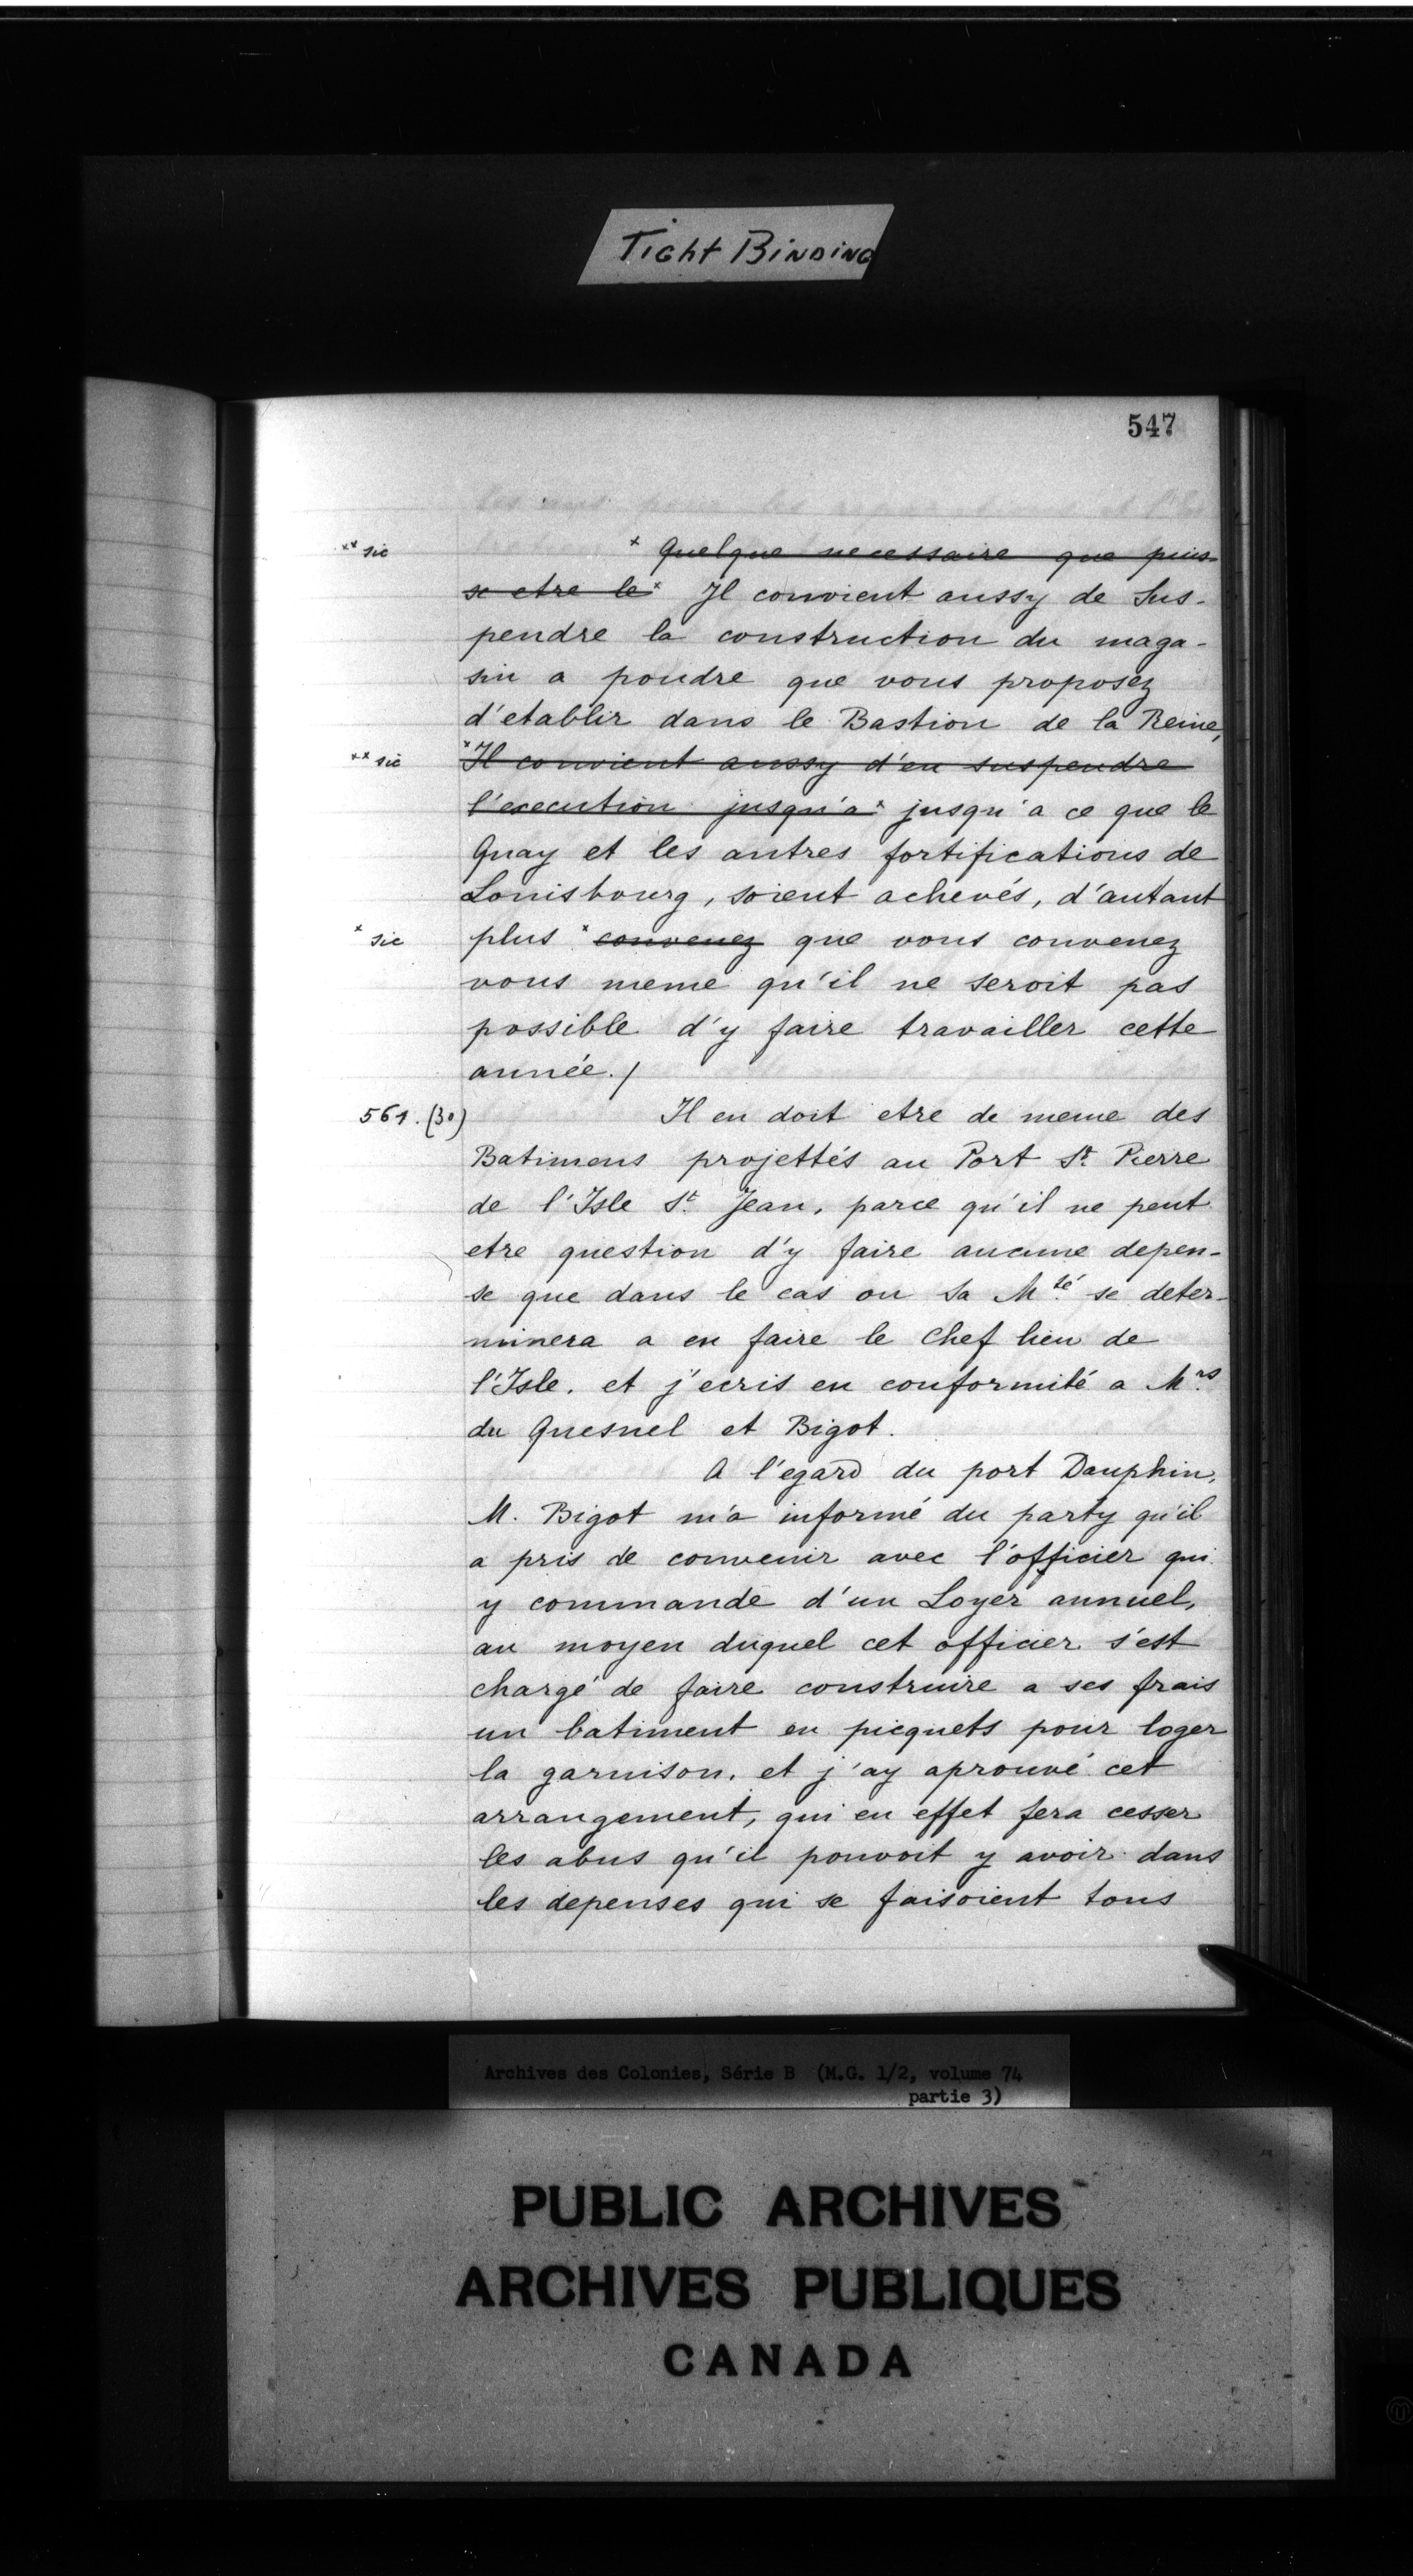 Tight Binding
547
** sic
* Quelque necessaire que puis-
se etre le* Il convient aussy de Sus-
pendre la construction du maga-
sin a poudre que vous proposez
d'etablir dans le Bastion de la Reine,
** sic
*Il convient aussy d'en suspendre
l'execution jusqu'a* jusqu'a ce que le
Quay et les autres fortifications de
Louisbourg, soient achevés, d'autant
* sic
plus *convenez que vous convenez
vous meme qu'il ne seroit pas
possible d'y faire travailler cette
année./
561. (30)
Il en doit etre de meme des
Batimens projettés au Port St. Pierre
de l'Isle St. Jean, parce qu'il ne peut
etre question d'y faire aucune depen-
se que dans le cas ou Sa Mté. se deter-
minera a en faire le Chef lieu de
l'Isle. et j'ecris en conformité a Mrs.
du Quesnel et Bigot.
A l'egard du port Dauphin,
M. Bigot m'a informé du party qu'il
a pris de convenir avec l'officier qui
y commande d'un Loyer annuel,
au moyen duquel cet officier s'est
chargé de faire construire a ses frais
un batiment en picquets pour loger
la garnison, et j'ay aprouvé cet
arrangement, qui en effet fera cesser
les abus qu'il pouvoit y avoir dans
les depenses qui se faisoient tous
Archives des Colonies, Série B (M.G. 1/2, volume 74
partie 3)
PUBLIC ARCHIVES
ARCHIVES PUBLIQUES
CANADA